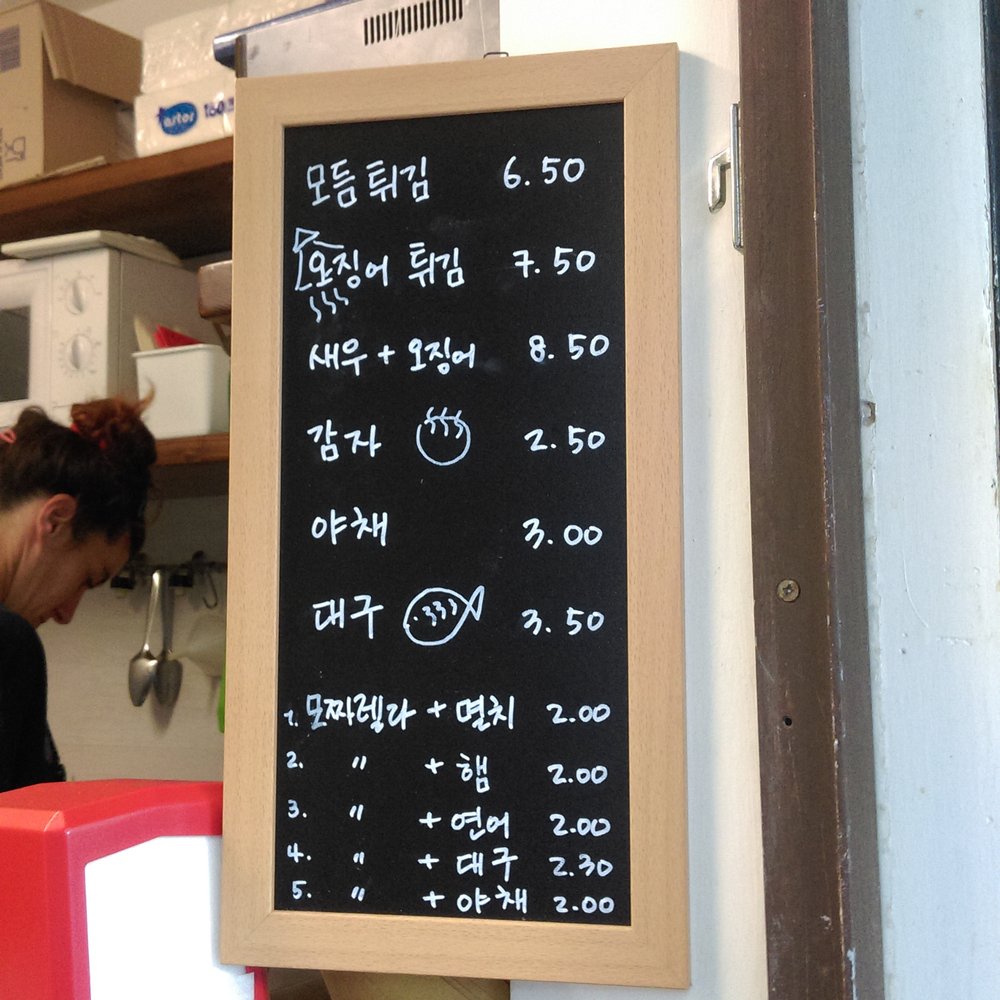 모듬 튀김 6.50
오징어 튀김 7.50
새우 + 오징어 8.50
감자 2.50
야채 3.00
대구 3.50
1. 모짜렐라 + 멸치 2.00
2. " + 햄 2.00
3. " + 연어 2.00
4. " + 대구 2.30
5. " + 야채 2.00